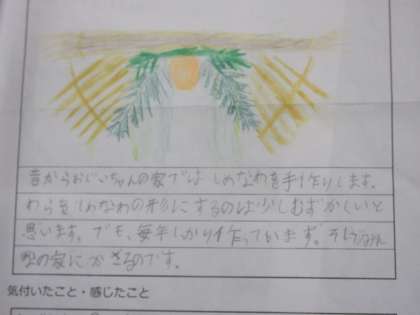 昔からおじいちゃんの家では しめなわを手作りします。
わらをしめなわの形にするのは少しむずかしいと
思います。でも、毎年しっかり作っています。そして
の家にかざるのです。
気付いたこと・感じたこと